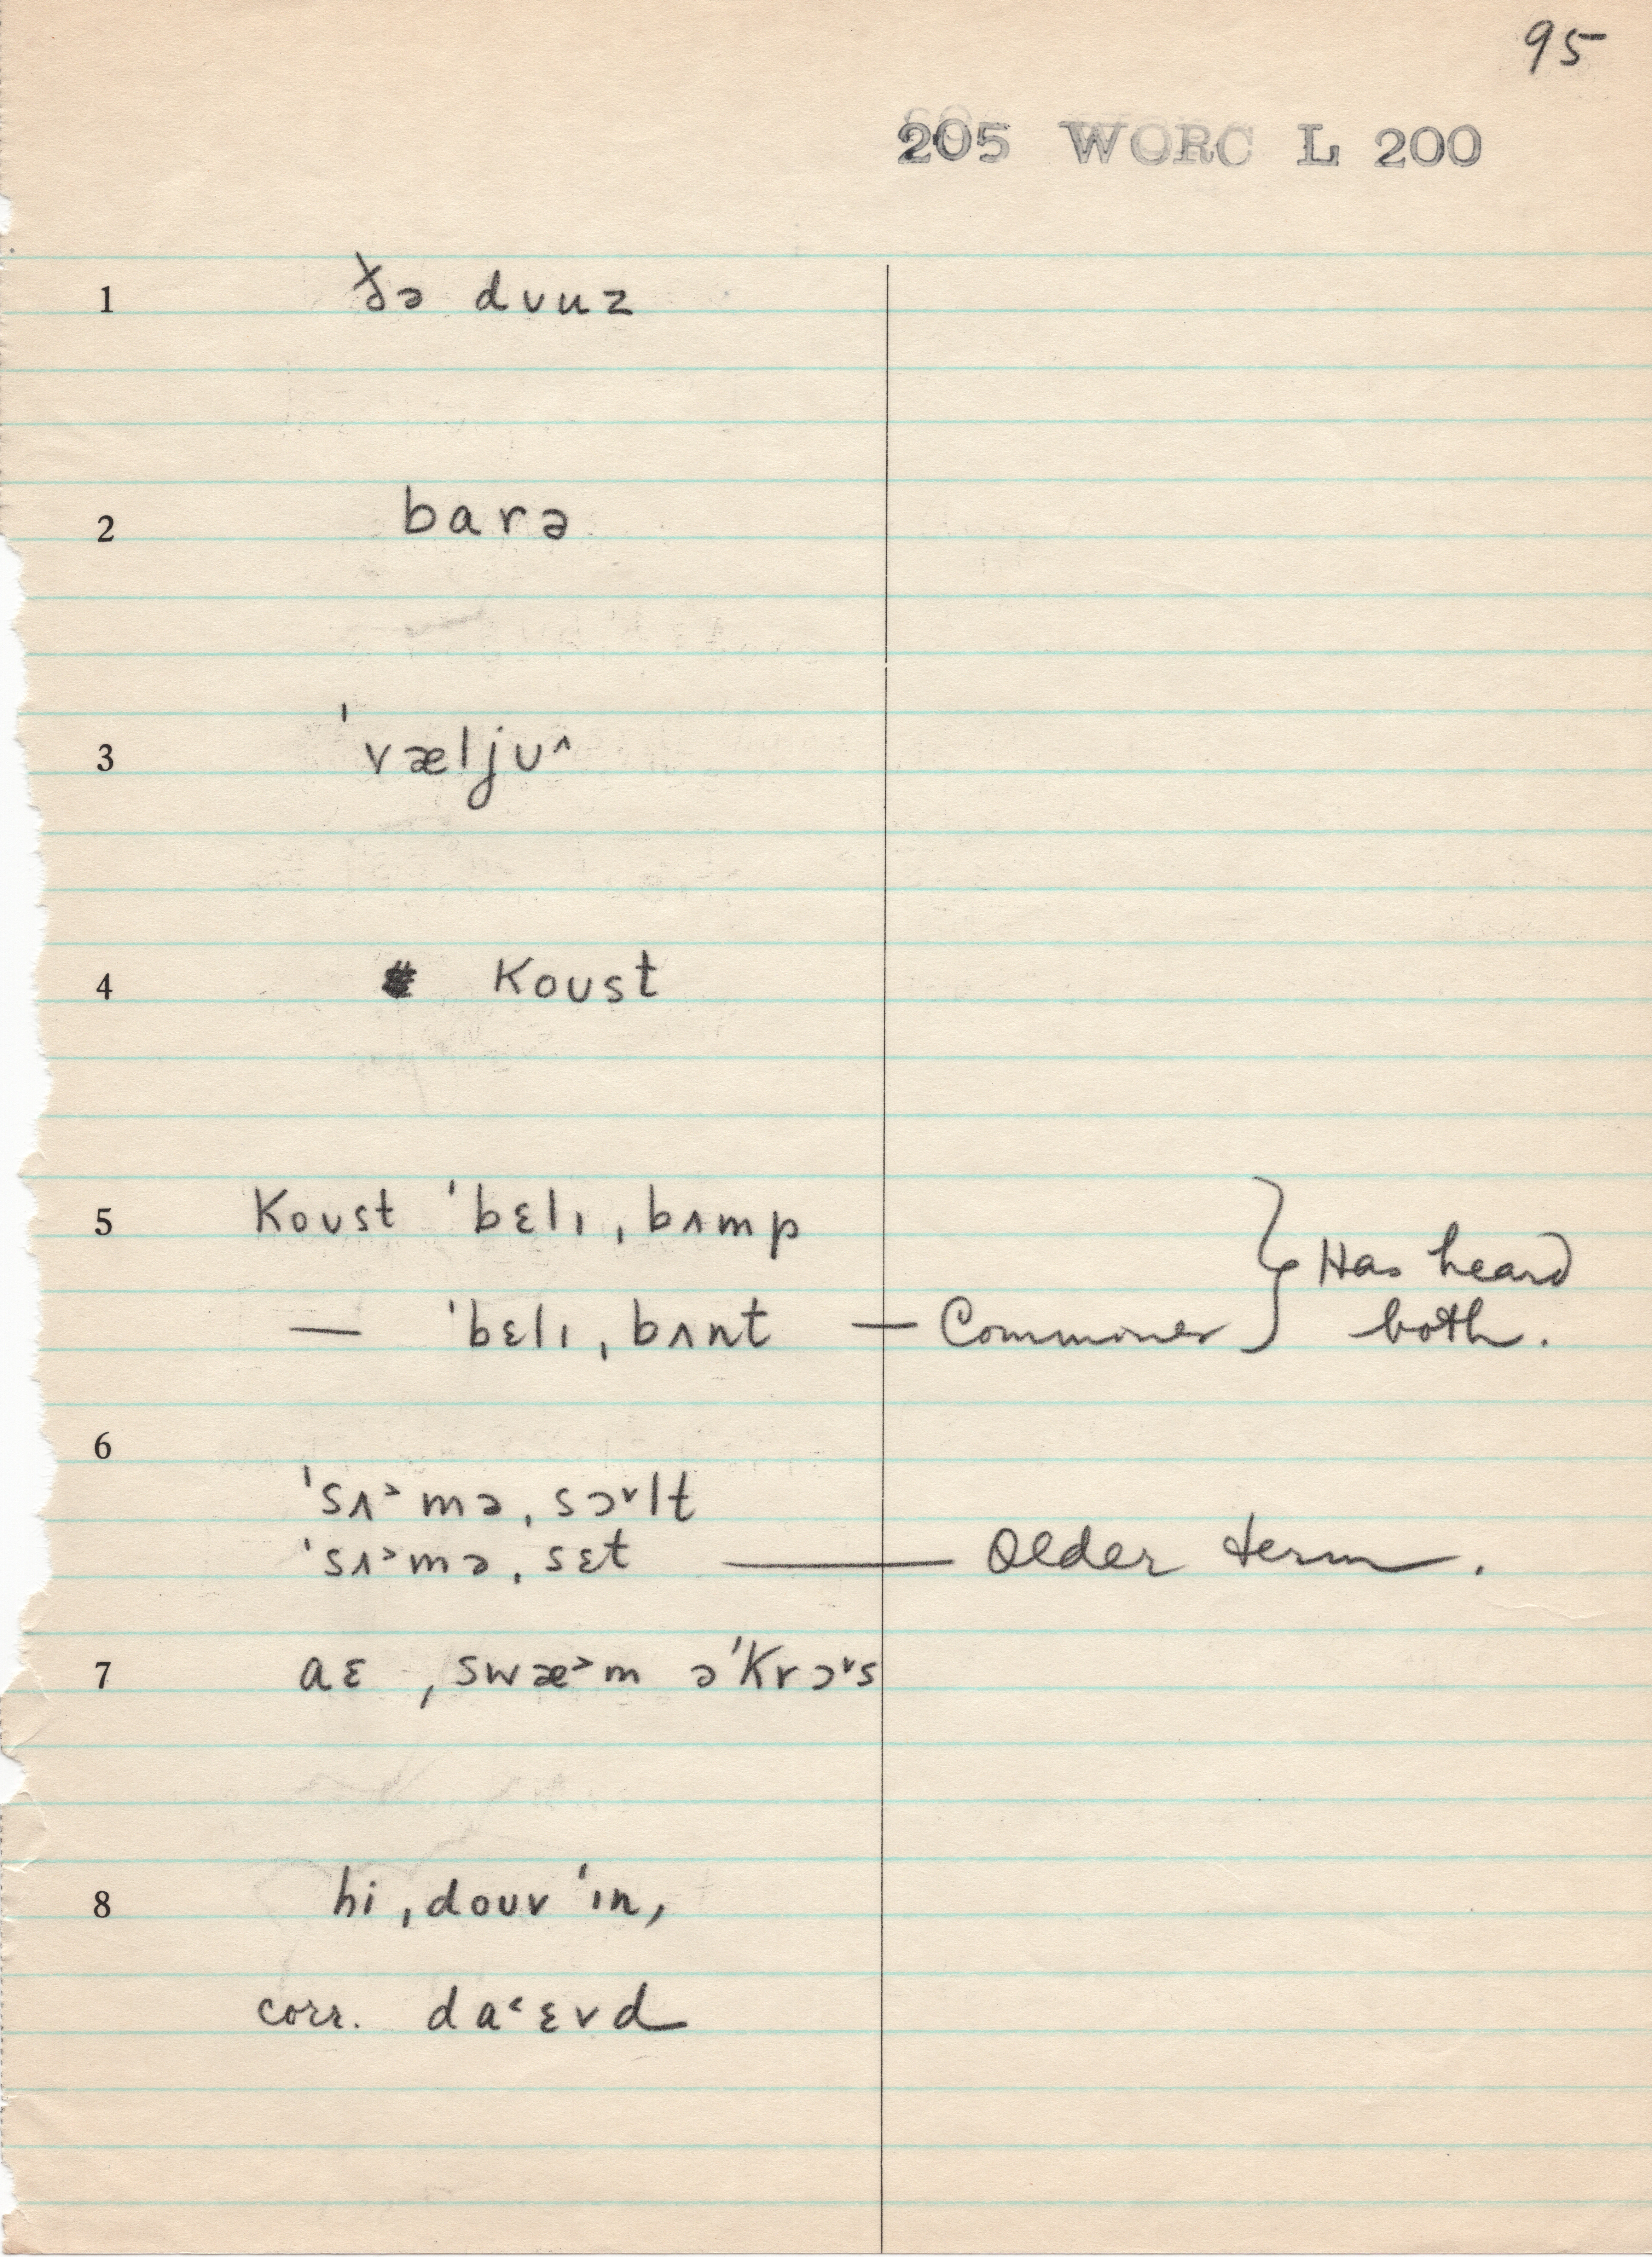 95
205 WORC L 200
1 ðə dʊuz
2 barə
3 ˈvæljʊ^
4 Koʊst
5 Koʊst ˈbɛlɪ ˌbʌmp
— ˈbɛlɪ ˌbʌnt — Commoner } Has heard both.
6
ˈsʌ˃mə ˌsɔ˅lt
ˈsʌ˃mə ˌsɛt — Older term.
7 aɛ ˌswæ˃m əˈKrɔ˅s
8 hi ˌdoʊv ˈɪn,
corr. da˂ɛvd